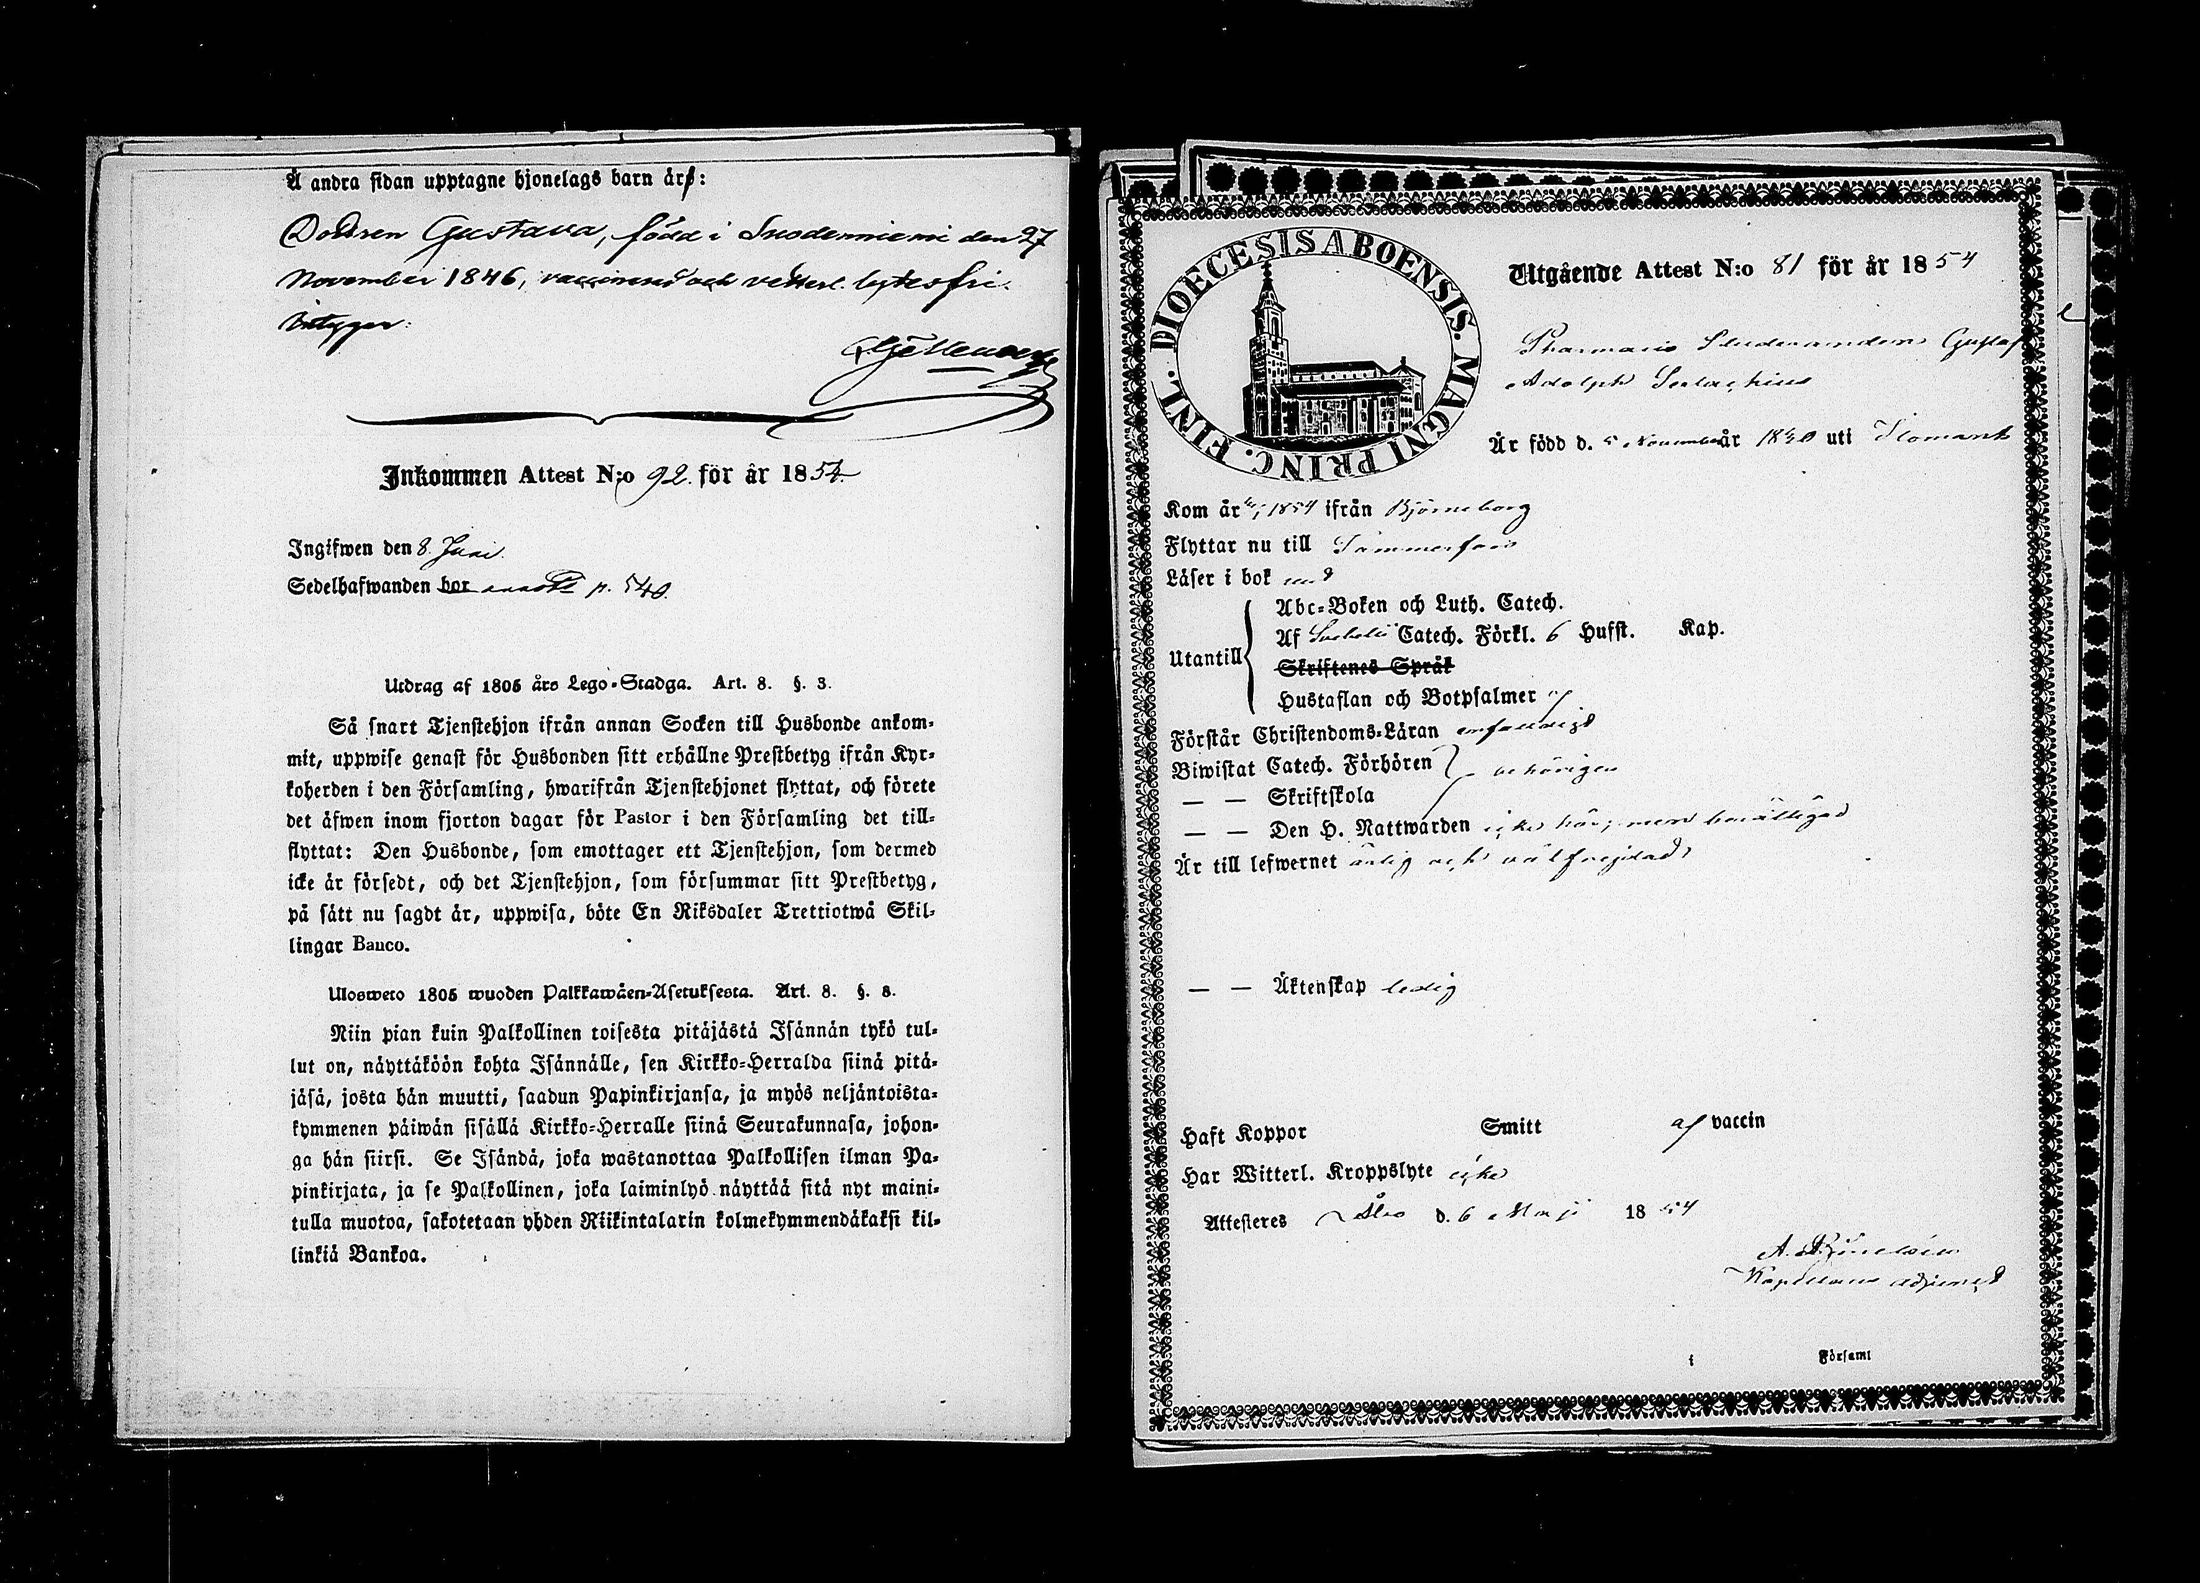 Å andra sidan upptagne hjonelags barn är:
Dottren Gustava, född i Suodenniemi den 27
November 1846, vaccinerad och vetterl. lytesfri.
betyger:
Inkommen Attest N:o 92. för år 1854.
Ingifwen den 8. Juni.
Sedelhafwanden bor p. 540.
Utdrag af 1805 års Lego-Stadga. Art. 8. §. 3.
Så snart Tjenstehjon ifrån annan Socken till Husbonde ankom-
mit, uppwise genast för Husbonden sitt erhållne Prestbetyg ifrån Kyr-
koherden i den Församling, hwarifrån Tjenstehjonet flyttat, och förete
det äfwen inom fjorton dagar för Pastor i den Församling det till-
flyttat: Den Husbonde, som emottager ett Tjenstehjon, som dermed
icke är försedt, och det Tjenstehjon, som försummar sitt Prestbetyg,
på sätt nu sagdt är, uppwisa, böte En Riksdaler Trettiotwå Skil-
lingar Banco.
Ulosweto 1805 wuoden Palkkawäen-Asetuksesta. Art. 8. §. 8.
Niin pian kuin Palkollinen toisesta pitäjästä Isännän tykö tul-
lut on, näyttäköön kohta Isännälle, sen Kirkko-Herralda siinä pitä-
jäsä, josta hän muutti, saadun Papinkirjansa, ja myös neljäntoista-
kymmenen päiwän sisällä Kirkko-Herralle siinä Seurakunnasa, johon-
ga hän siirsi. Se Isändä, joka wastanottaa Palkollisen ilman Pa-
pinkirjata, ja se Palkollinen, joka laiminlyö näyttää sitä nyt maini-
tulla muotoa, sakotetaan yhden Riikintalarin kolmekymmendäkaksi kil-
linkiä Bankoa.
DIOECESIS ABOENSIS. MAGNI PRINC. FINL.
Utgående Attest N:o 81 för år 1854
Pharmacie Studeranden Gustaf
Adolph Serlachius
Är född d. 5 November år 1830 uti Ilomants
Kom år 1854 ifrån Björneborg
Flyttar nu till Tammerfors
Läser i bok
Utantill
Abc-Boken och Luth. Catech.
Af Svebelii Catech. Förkl. 6 Hufst. Kap.
Skriftenes Språk
Hustaflan och Botpsalmer
Förstår Christendoms-Läran enfaldigt
Biwistat Catech. Förhören behörigen
— — Skriftskola
— — Den H. Nattwarden icke här, men berättigad
Är till lefwernet ärlig och välfrejdad
— — Äktenskap ledig
Haft Koppor Smitt af vaccin
Har Witterl. Kroppslyte icke
Attesteres Åbo d. 6 Maji 1854
Kapellans adjunct
i Församl